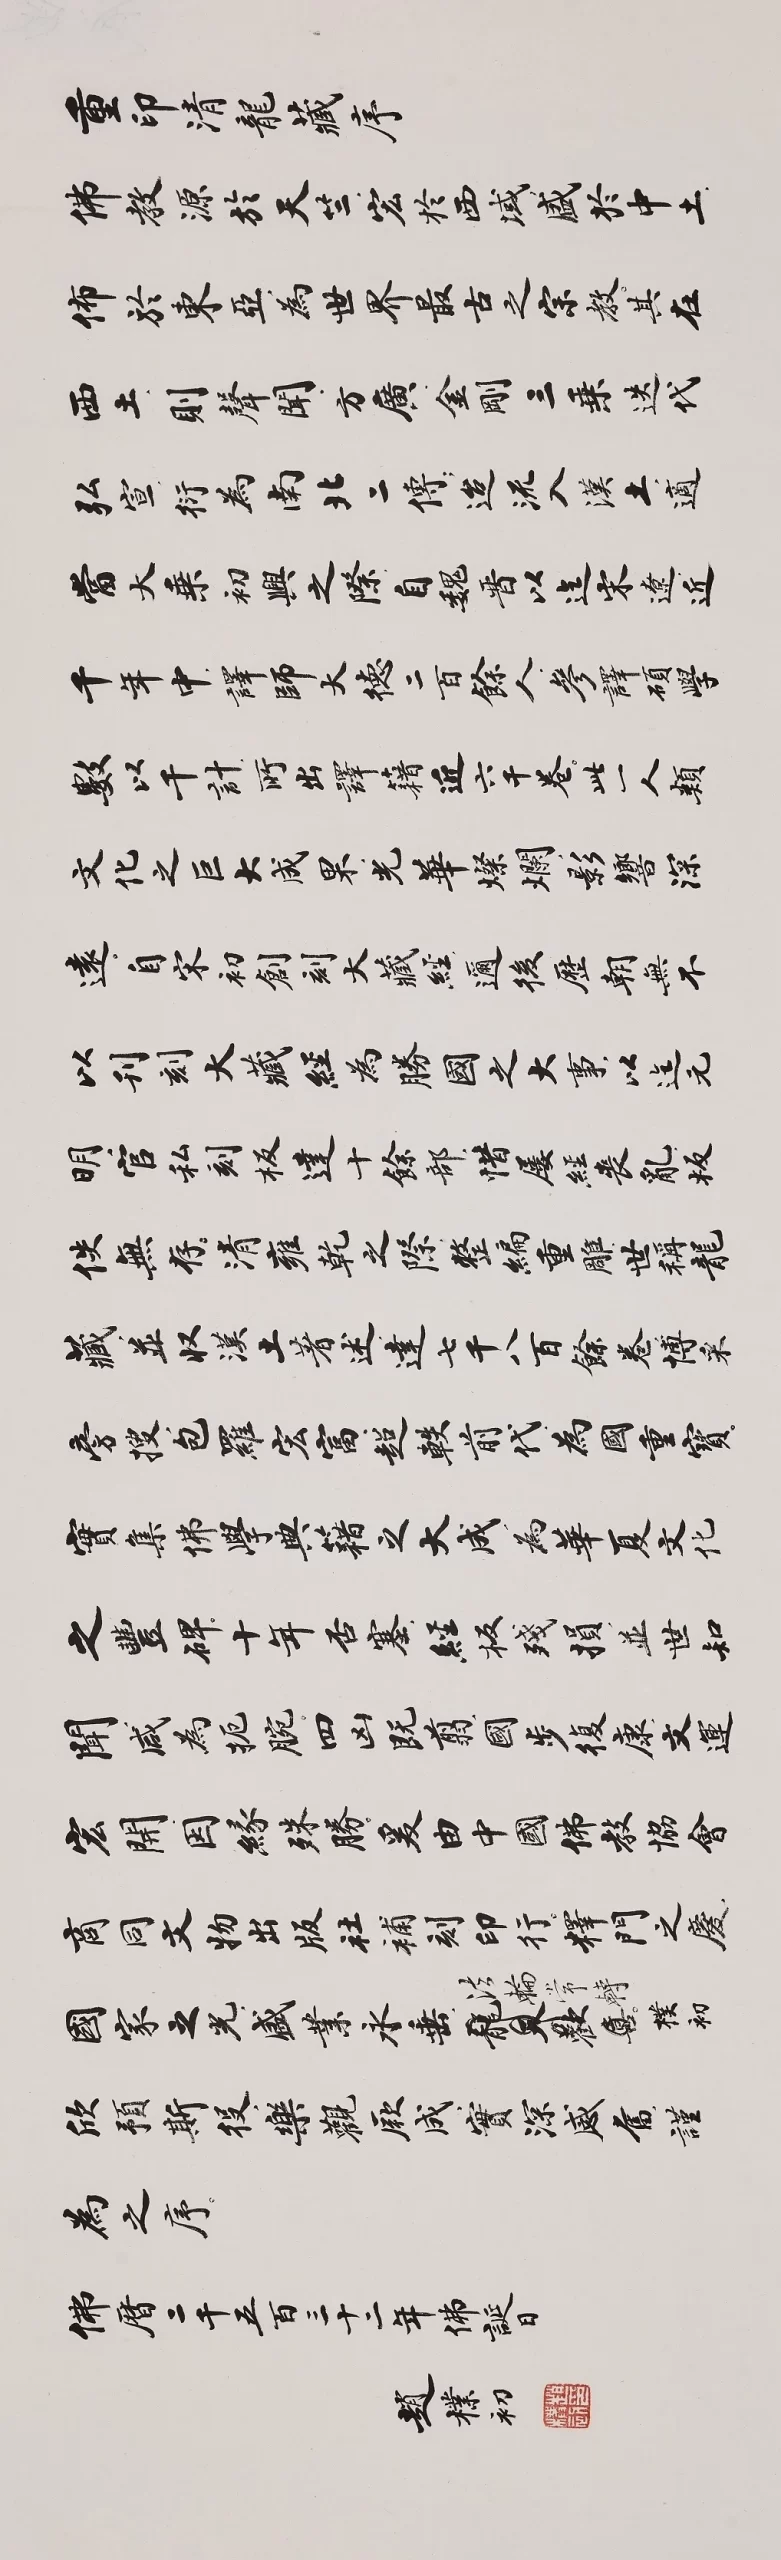 重印清龍藏序
佛教源於天竺宏於西域盛於中土
佈於東亞為世界最古之宗教其在
西土則聲聞方廣金剛三乘迭代
弘宣衍為南北二傳迨流入漢土適
當大乘初興之際自魏晋以迄宋遼近
千年中譯師大德二百餘人參譯碩學
數以千計所出譯籍近六千卷此一人類
文化之巨大成果光華燦爛影響深
遠自宋初創刻大藏經邇後歷朝無不
以刊刻大藏經為勝國之大事以迄元
明官私刻板達十餘部惜屢經喪亂板
佚無存清雍乾之際整編重雕世稱龍
藏並收漢土著述達七千八百餘卷博采
旁搜包羅宏富超軼前代為國重寶
實集佛學典籍之大成為華夏文化
之豐碑十年否塞經板殘損並世知
聞咸為扼腕四凶既翦國步復康文運
宏開因緣殊勝爰由中國佛教協會
商同文物出版社補刻印行釋門之慶
國家之光盛業永垂龍天歡樸初
法輪常轉
欣預斯役樂觀厥成實深感奮謹
為之序
佛曆二千五百三十二年佛誕日
趙樸初